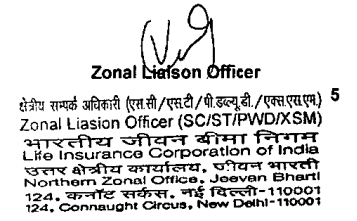 Zonal Liaison Officer
क्षेत्रीय सम्पर्क अधिकारी (एस.सी/एस.टी/पी.डब्ल्यू.डी./एक्स.एस.एम.) 5
Zonal Liasion Officer (SC/ST/PWD/XSM)
भारतीय जीवन बीमा निगम
Life Insurance Corporation of India
उत्तर क्षेत्रीय कार्यालय, जीवन भारती
Northern Zonal Office, Jeevan Bharti
124, कनॉट सर्कस, नई दिल्ली-110001
124, Connaught Circus, New Delhi-110001